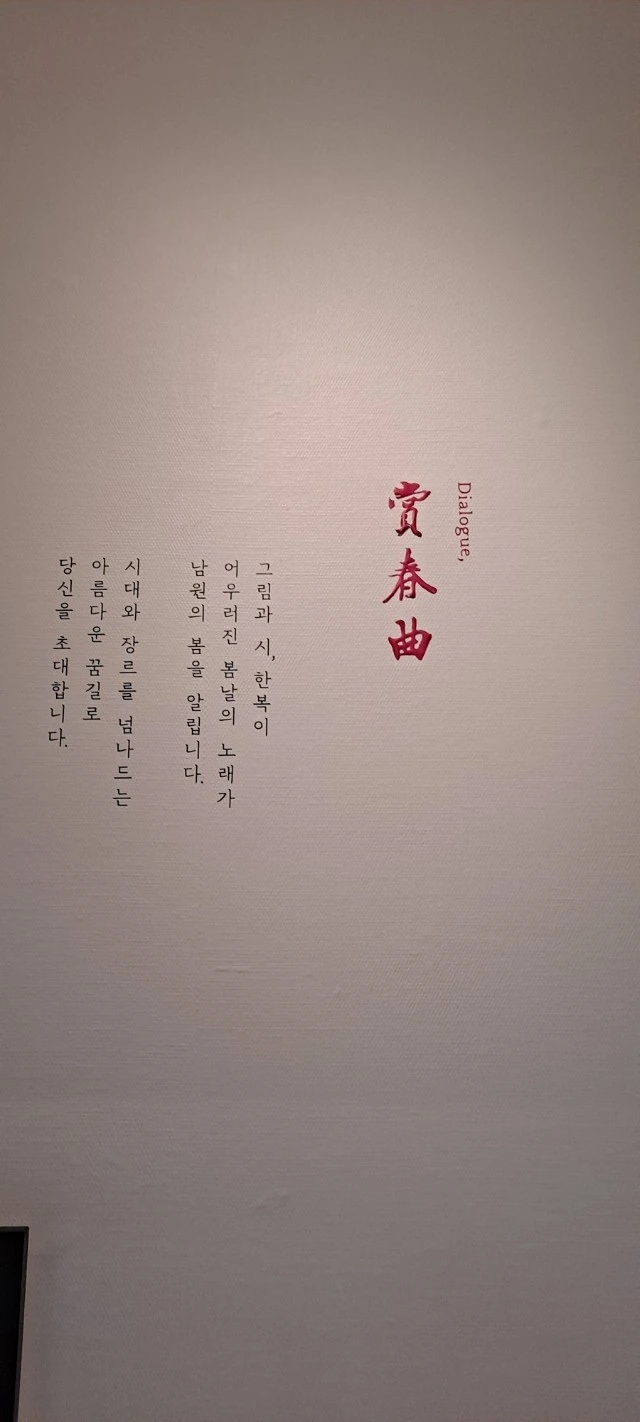 Dialogue,
賞春曲
그림과 시, 한복이
어우러진 봄날의 노래가
남원의 봄을 알립니다.
시대와 장르를 넘나드는
아름다운 꿈길로
당신을 초대합니다.